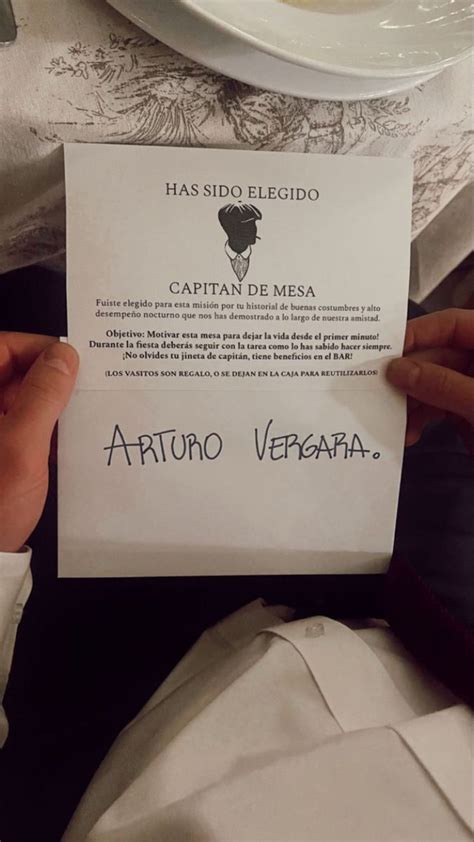 HAS SIDO ELEGIDO
CAPITAN DE MESA
Fuiste elegido para esta misión por tu historial de buenas costumbres y alto
desempeño nocturno que nos has demostrado a lo largo de nuestra amistad.
Objetivo: Motivar esta mesa para dejar la vida desde el primer minuto!
Durante la fiesta deberás seguir con la tarea como lo has sabido hacer siempre.
¡No olvides tu jineta de capitán, tiene beneficios en el BAR!
(LOS VASITOS SON REGALO, O SE DEJAN EN LA CAJA PARA REUTILIZARLOS)
ARTURO VERGARA.